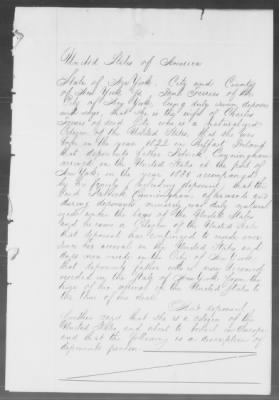 United States of America
State of New York. City and County
of New York. ss. Jane Greves of the
City of New York being duly sworn deposes
and says, that she is the wife of Charles
who is a naturalized
Citizen of the United States, that she was
born in the year 1822 in Belfast Ireland
that deponents father Patrick Cunningham
arrived in the United States at the port of
New York in the year 1828 accompanied
by his family including deponent, that the
said Patrick Cunningham, afterwards and
during deponents minority was duly natural
ized under the laws of the United States
and became a Citizen of the United States
that deponent has continued to reside ever
since her arrival in the United States and
does now reside in the City of New York
that deponents father who is now deceased
resided in the City of New York from the
time of his arrival in the United States to
the time of his death.
That deponent
further says that she is a citizen of the
United States, and about to travel in Europe
and that the following is a description of
deponents person